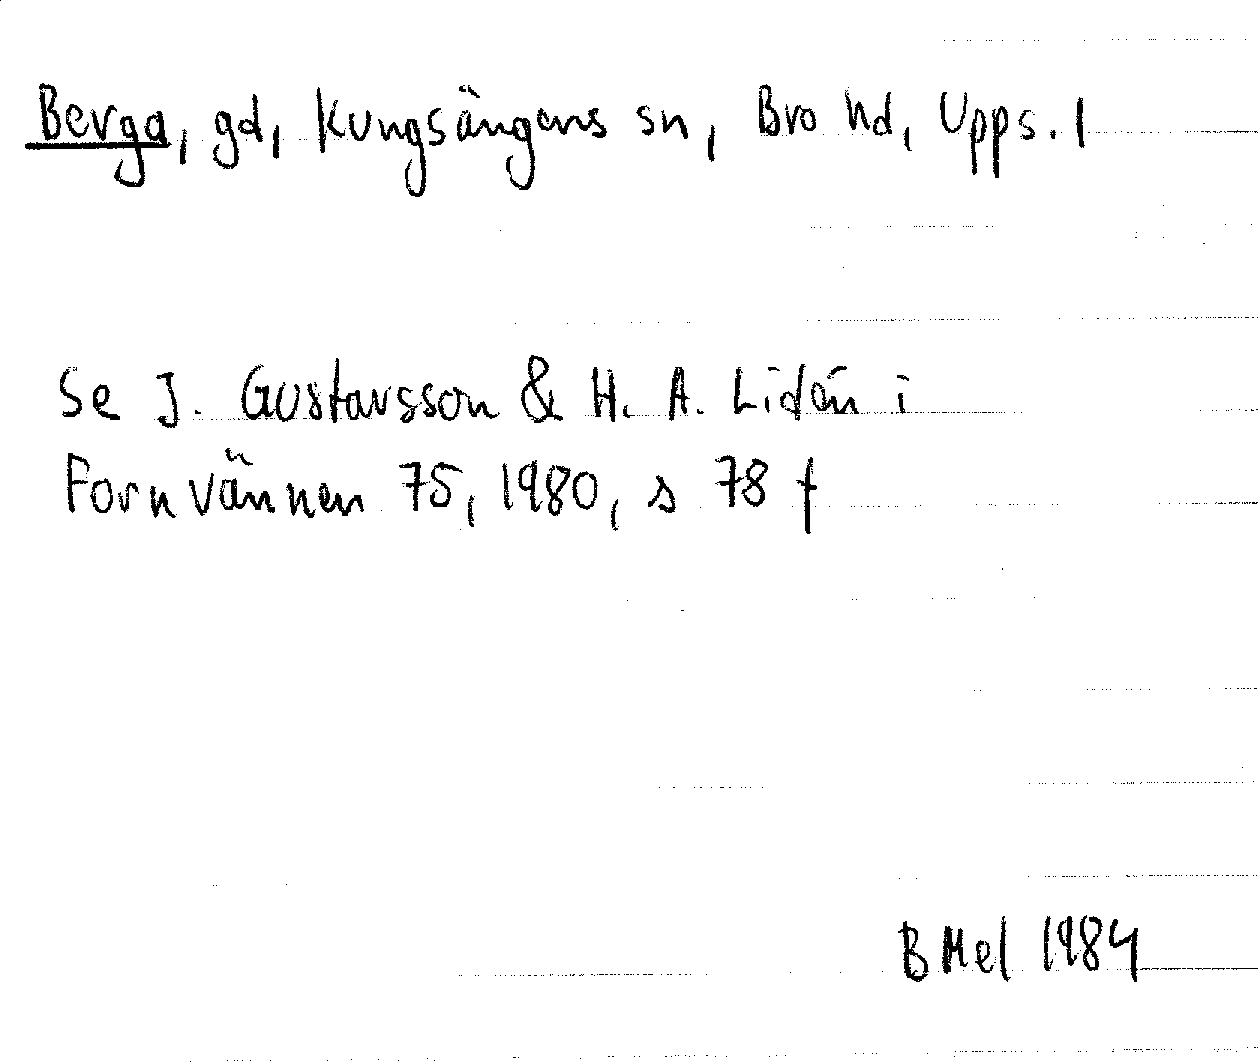 Berga, gd, Kungsängens sn, Bro hd, Upps. l
Se J. Gustavsson & H. A. Lidén i
Fornvännen 75, 1980, s 78 f
B Mel 1984